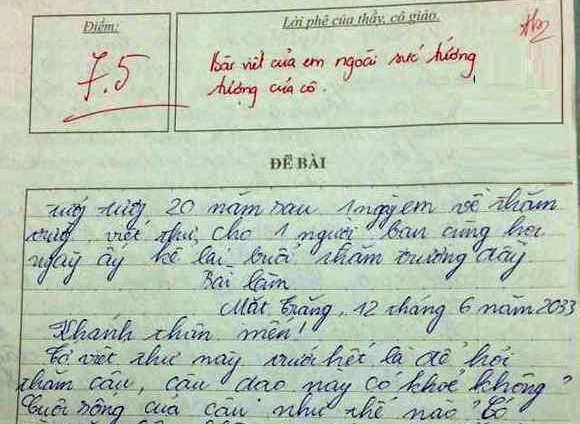 Điểm:
7.5
Lời phê của thầy, cô giáo.
Bài viết của em ngoài sức tưởng
tượng của cô.
ĐỀ BÀI
tưởng tượng 20 năm sau 1 ngày em về thăm
trường, viết thư cho 1 người bạn cùng học
ngày ấy kể lại buổi thăm trường đầy
Bài làm
Mặt Trăng, 12 tháng 6 năm 2033
Khanh thân mến!
Tớ viết thư này trước hết là để hỏi
thăm cậu, cậu dạo này có khoẻ không?
Cuộc sống của cậu như thế nào? Tớ